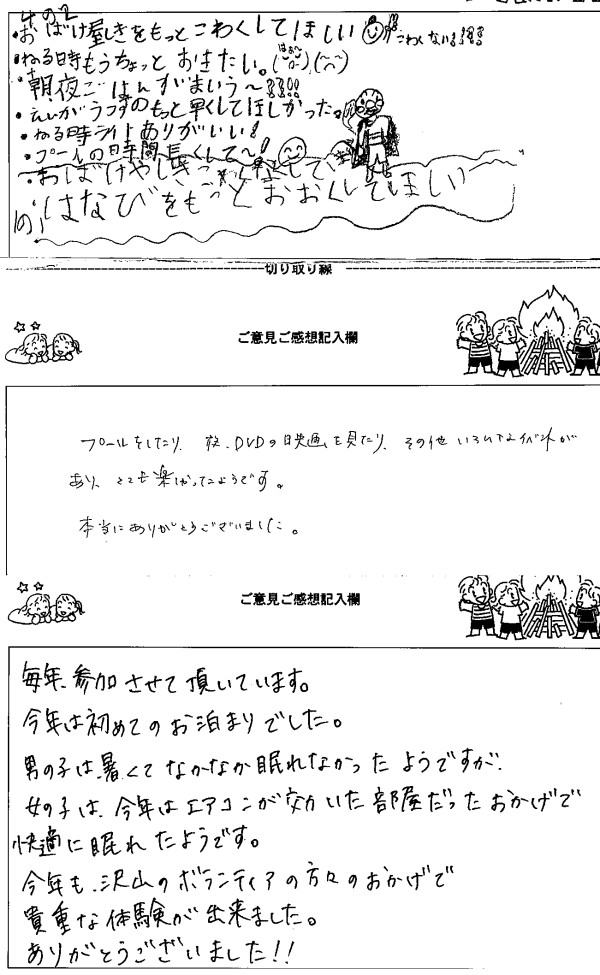 その2
・おばけ屋しきをもっとこわくしてほしい こわくない!!!!
・ねる時もうちょっと おきたい。
・朝、夜ごはんがまいう〜!!!!
・えいがうつすのもっと早くしてほしかった。
・ねる時ライトありがいい!
・プールの時間長くして〜!
・おばけやしき
・はなびをもっとおおくしてほしい
切り取り線
ご意見ご感想記入欄
プールをしたり、夜、DVDの映画を見たり、その他 いろいろなイベントが
あり、とても楽しかったようです。
本当にありがとうございました。
ご意見ご感想記入欄
毎年、参加させて頂いています。
今年は初めてのお泊まりでした。
男の子は、暑くてなかなか眠れなかったようですが、
女の子は、今年はエアコンが効いた部屋だったおかげで
快適に眠れたようです。
今年も、沢山のボランティアの方々のおかげで
貴重な体験が出来ました。
ありがとうございました!!